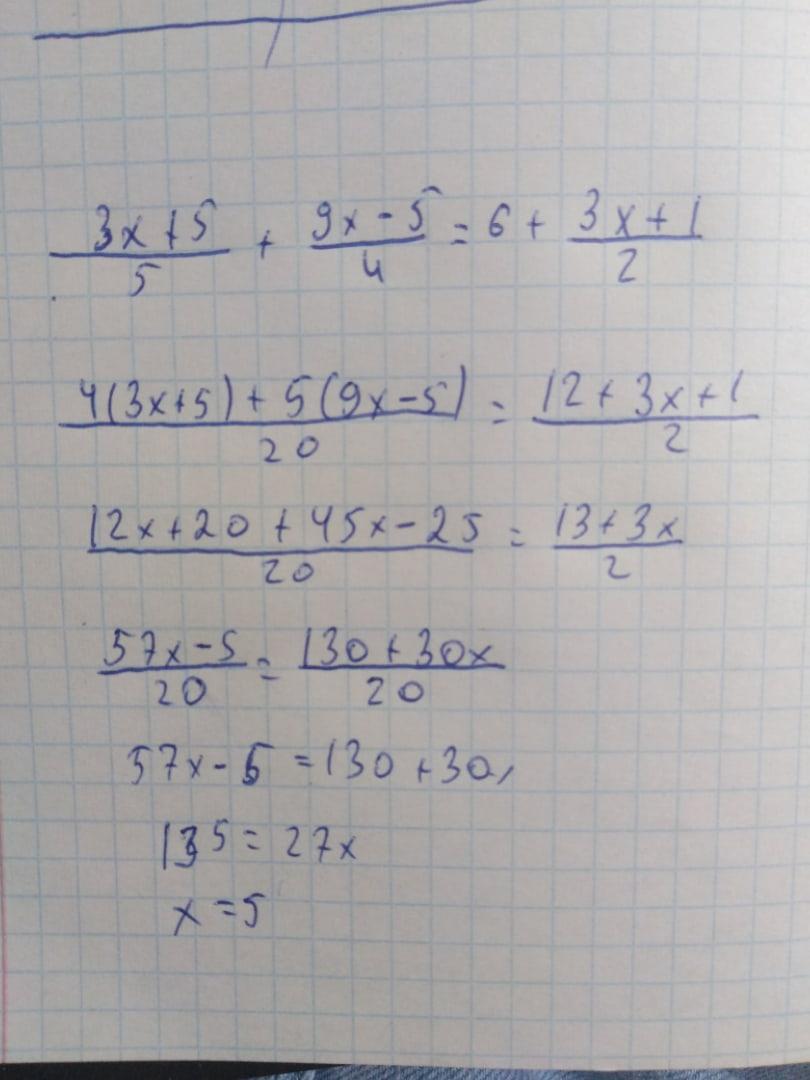 (3x+5)/5 + (9x-5)/4 = 6 + (3x+1)/2
(4(3x+5)+5(9x-5))/20 = (12+3x+1)/2
(12x+20+45x-25)/20 = (13+3x)/2
(57x-5)/20 = (130+30x)/20
57x-5 = 130+30,
135 = 27x
x = 5